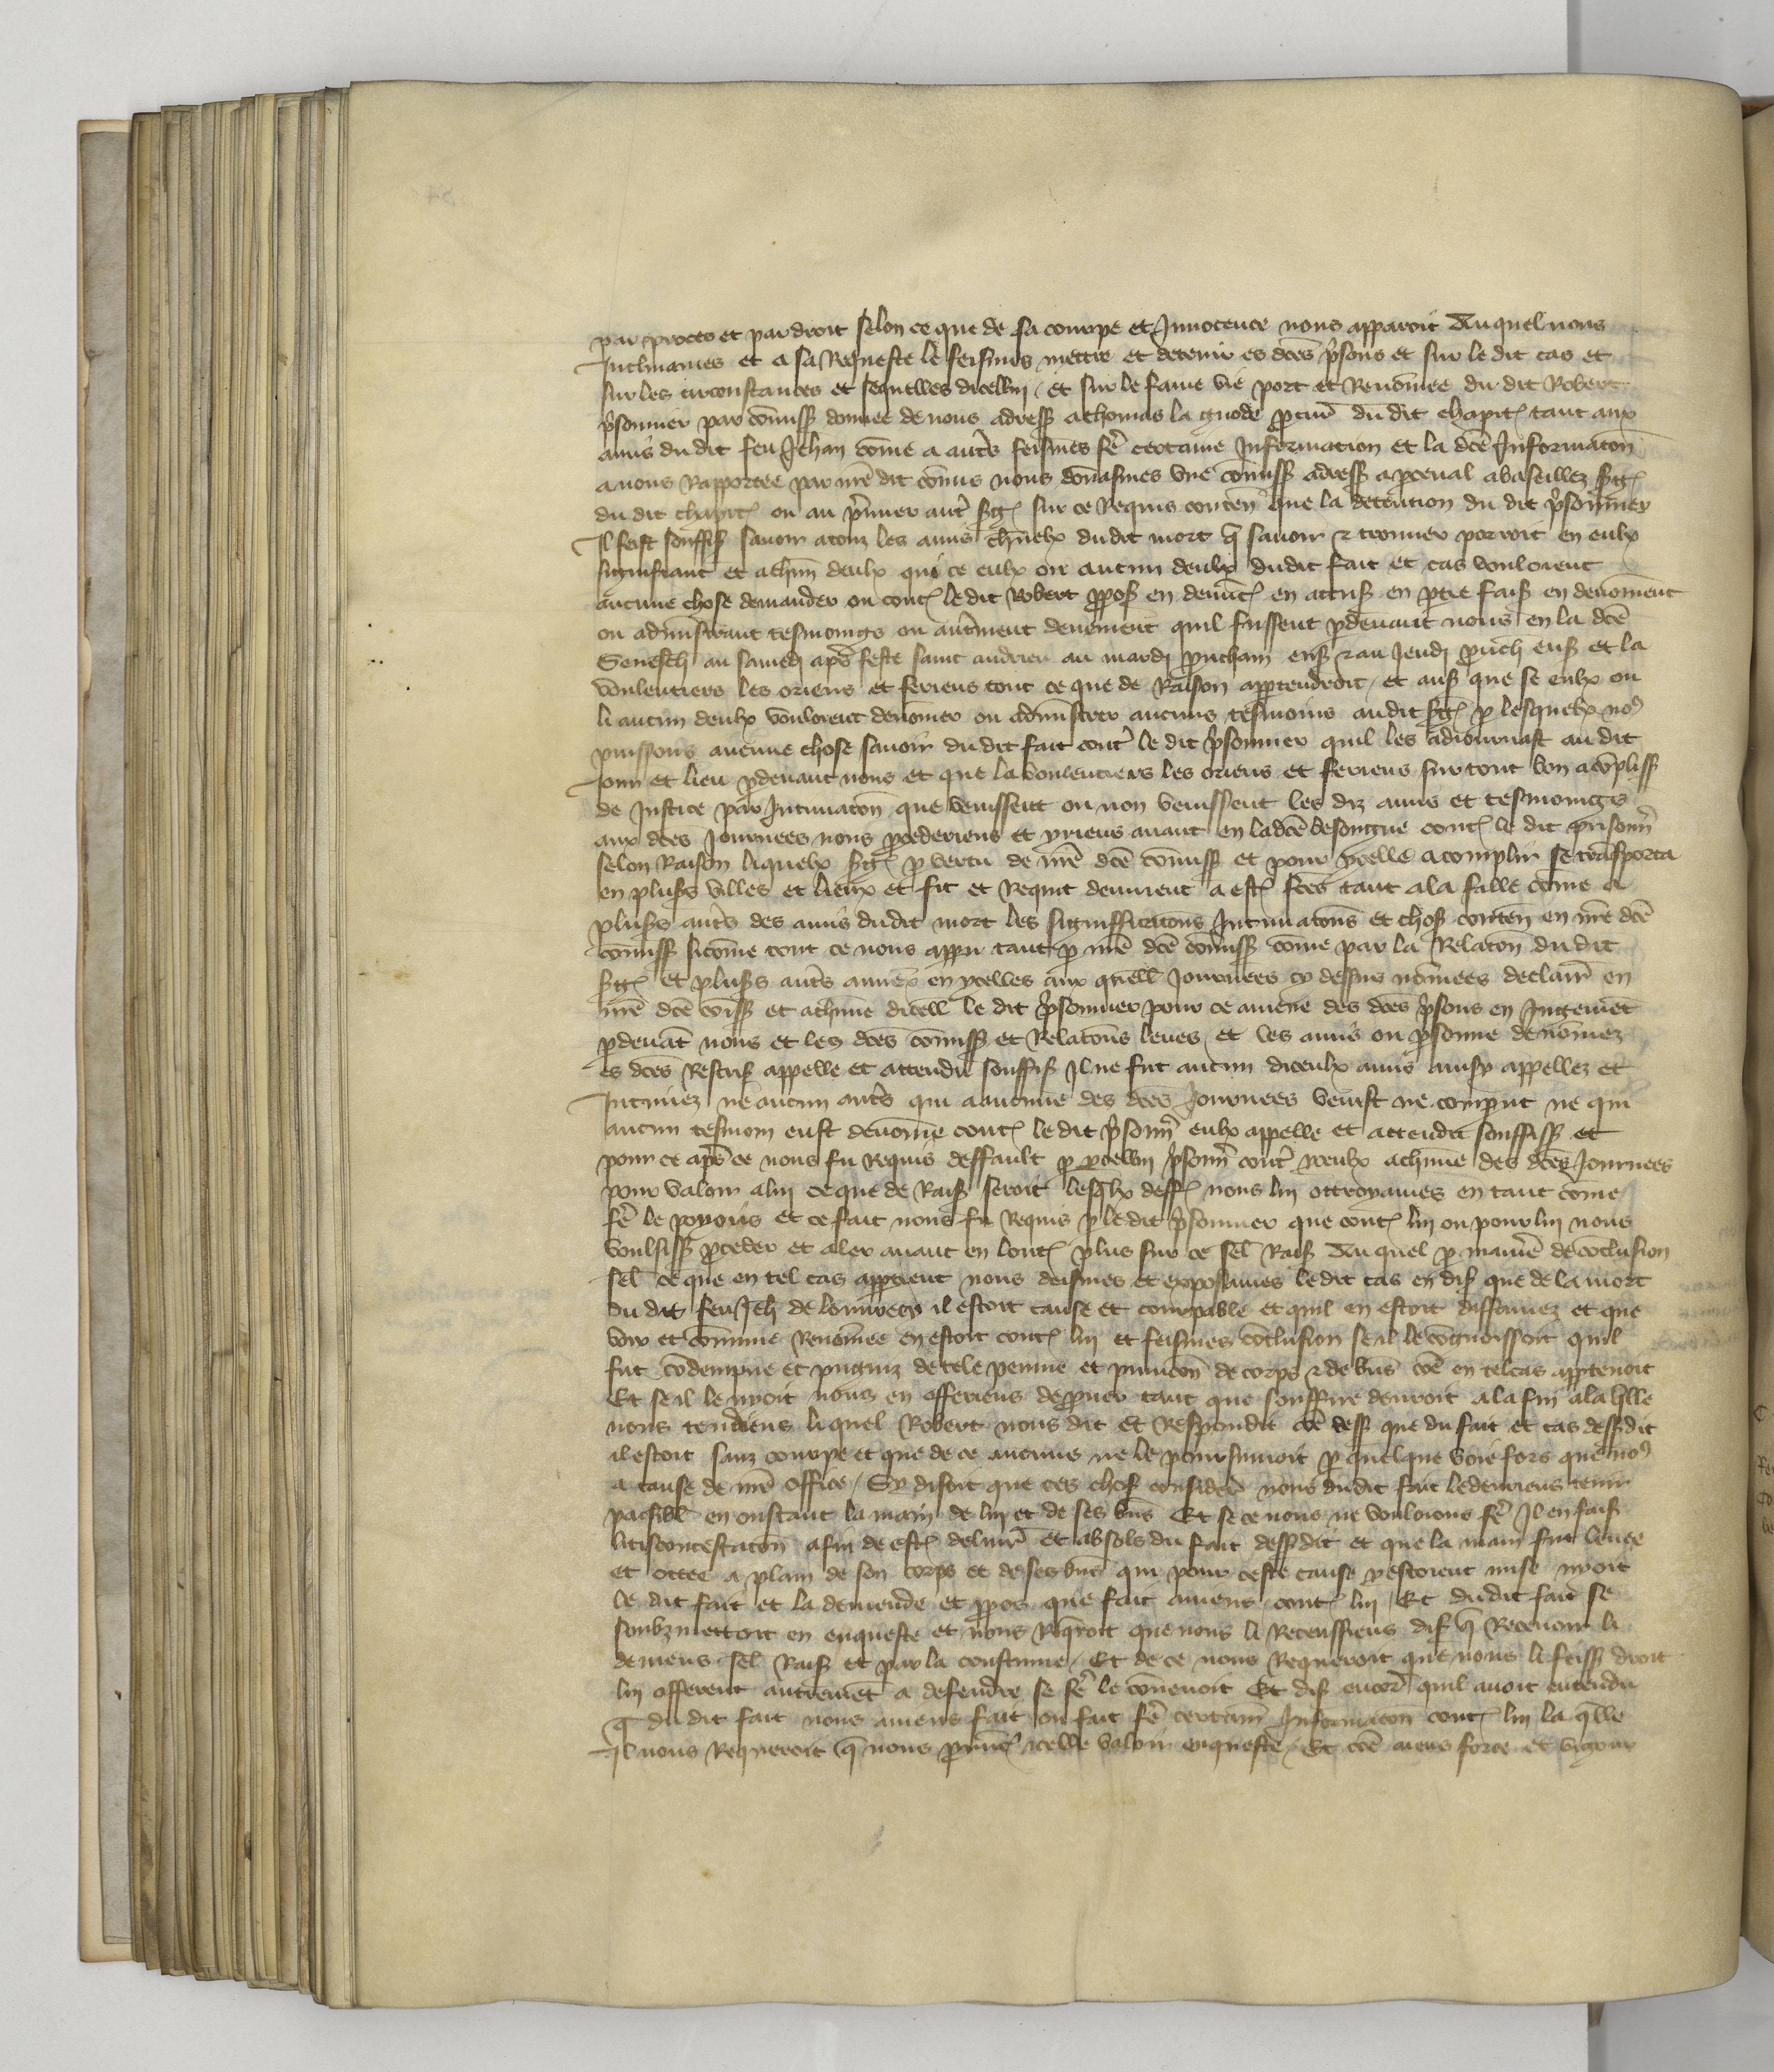 par proces et par droit selon ce que de sa courpe et Innocence nous apparoit Auquel nous
Inclinames et a sa Requeste le feismes mettre et detenir es dces prisons et sur le dit cas et
sur les circonstances et sequelles dicellui / et sur le fame vie port et Renommee du dit Robert
prisonnier par commiss donnee de nous adress a thomas la procur du dit chapitre tant aux
amis du dit feu Jehan come a autres feismes fere certaine Information et la dce Informacon
a nous Rapportee par nre dit commis nous donnasmes une commiss adress a perceval sergent
du dit chapitre ou au premier autre sergent sur ce Requis conten que la detencion du dit prisonnier
Il feist souffis savoir a touz les amis charnelx dudit mort que savoir et trouver porroit en eulx
signifiant et a chun deulx que ce eulx ou aucun deulx dudit fait et cas vouloient
aucune chose demander ou contre le dit Robert propos en denunc en accus en partie fais en denomment
ou administrant tesmoings ou autrement deuement quil fussent pardevant nous en la dce
Senesch au samedi apres feste saint andrieu au mardi prouchain ens et au Jeudi prouch ens et la
voulentiers les oriens et feriens tout ce que de Raison appartendroit / et auss que se eulx ou
li aucun deulx vouloient denommer ou administrer aucuns tesmoins au dit sergent par lesquelx nous
puissons aucune chose savoir du dit fait contre le dit prisonnier quil les adiournast au dit
Jour et lieu pardevant nous et que la voulentiers les oriens et feriens sur tout bon acompliss
de Justice par Intimacon que venissent ou non venissent les diz amis et tesmoings
aux dces Journees nous procederiens et yriens avant en ladce besongne contre le dit prisonn
selon Raison liquelx sergent par vertu de nre dce commiss et pour ycelle acomplir se transporta
en pluss villes et lieux et fit et Requit deuement a estre fces tant a la falle come a
pluss autres des amis dudit mort les significacons Intimacons et chos conten en nre dce
commiss sicome tout ce nous appru tant par nre dce commiss come par la Relacon du dit
sergent et pluss autres annex en ycelles aux quell Journees cy dessus nommees declair en
nre dce comiss et a chune dicell le dit prisonnier pour ce amene des dces prisons en Jugement
pardevant nous et les dces commiss et Relacons leues / et les amis ou personne denommez
es dces Rescrips appelle et attendu souffis Il ne fut aucun diceulx amis ainsy appellez et
Intimez ne aucun autre qui a aucune des dces Journees venist ne comparut ne qui
aucun tesmoin eust denomme contre le dit prisonn eulx appelle et attendu souffiss et
pour ce apres ce nous fu requis deffault par ycellui prisonn contre yceulx a chune des dces Journees
pour valoir a lui ce que de Rais seroit lesqlx deff nous lui ottroyames en tant come
fere le poyons et ce fait nous fu Requis par le dit prisonnier que contre lui ou pour lui nous
voulsiss proceder et aler avant en loutre plus sur ce sel Rais Auquel par maniere de conclusion
sel ce que en tel cas appartient nous deismes et exposames le dit cas en dis que de la mort
du dit feu Jeh de il estoit cause et courpable et quil en estoit diffamez et que
voix et commune Renommee en estoit contre lui et feismes conclusion se il le cognoissoit quil
fut condempne et pugniz de tele peinne et punicon de corps et de bns come en tel cas appartenoit
Et se il le nyoit nous en offeriens de prouver tant que souffire devroit a la fin a la qlle
nous tendiens liquel Robert nous dit et Respondit come dess que du fait et cas dessdit
il estoit sanz courpe et que de ce aucuns ne le poursuivoit par quelque voie fors que nous
a cause de nre office / Sy disoit que ces chos consider nous du dit fait le deveriens tenir
paisibl en oustant la main de lui et de ses bns Et se ce nous ne vouloions fere Il en fais
litiscontestacon afin de estre delivr et absols du fait dessdit et que la main fut levee
et ostee a plain de son corps et de ses bns qui pour ceste cause y estoient mise nyoit
le dit fait et la demende et propos que fait aviens contre lui / Et dudit fait se
soubzmettoit en enqueste et nous Requroit que nous li Receussiens dis que Recevoir li
deviens sel Rais et par la coustume / Et de ce nous Requeroit que nous li feiss droit
lui offerent autrement a defendre se fere le convenoit Et dis encore quil avoit entendu
que du dit fait nous aviens fait ou fait fere certaine Informacon contre lui la qlle
Il nous Requeroit que nous icelle valoir enqueste / Et come aiens force et vigour